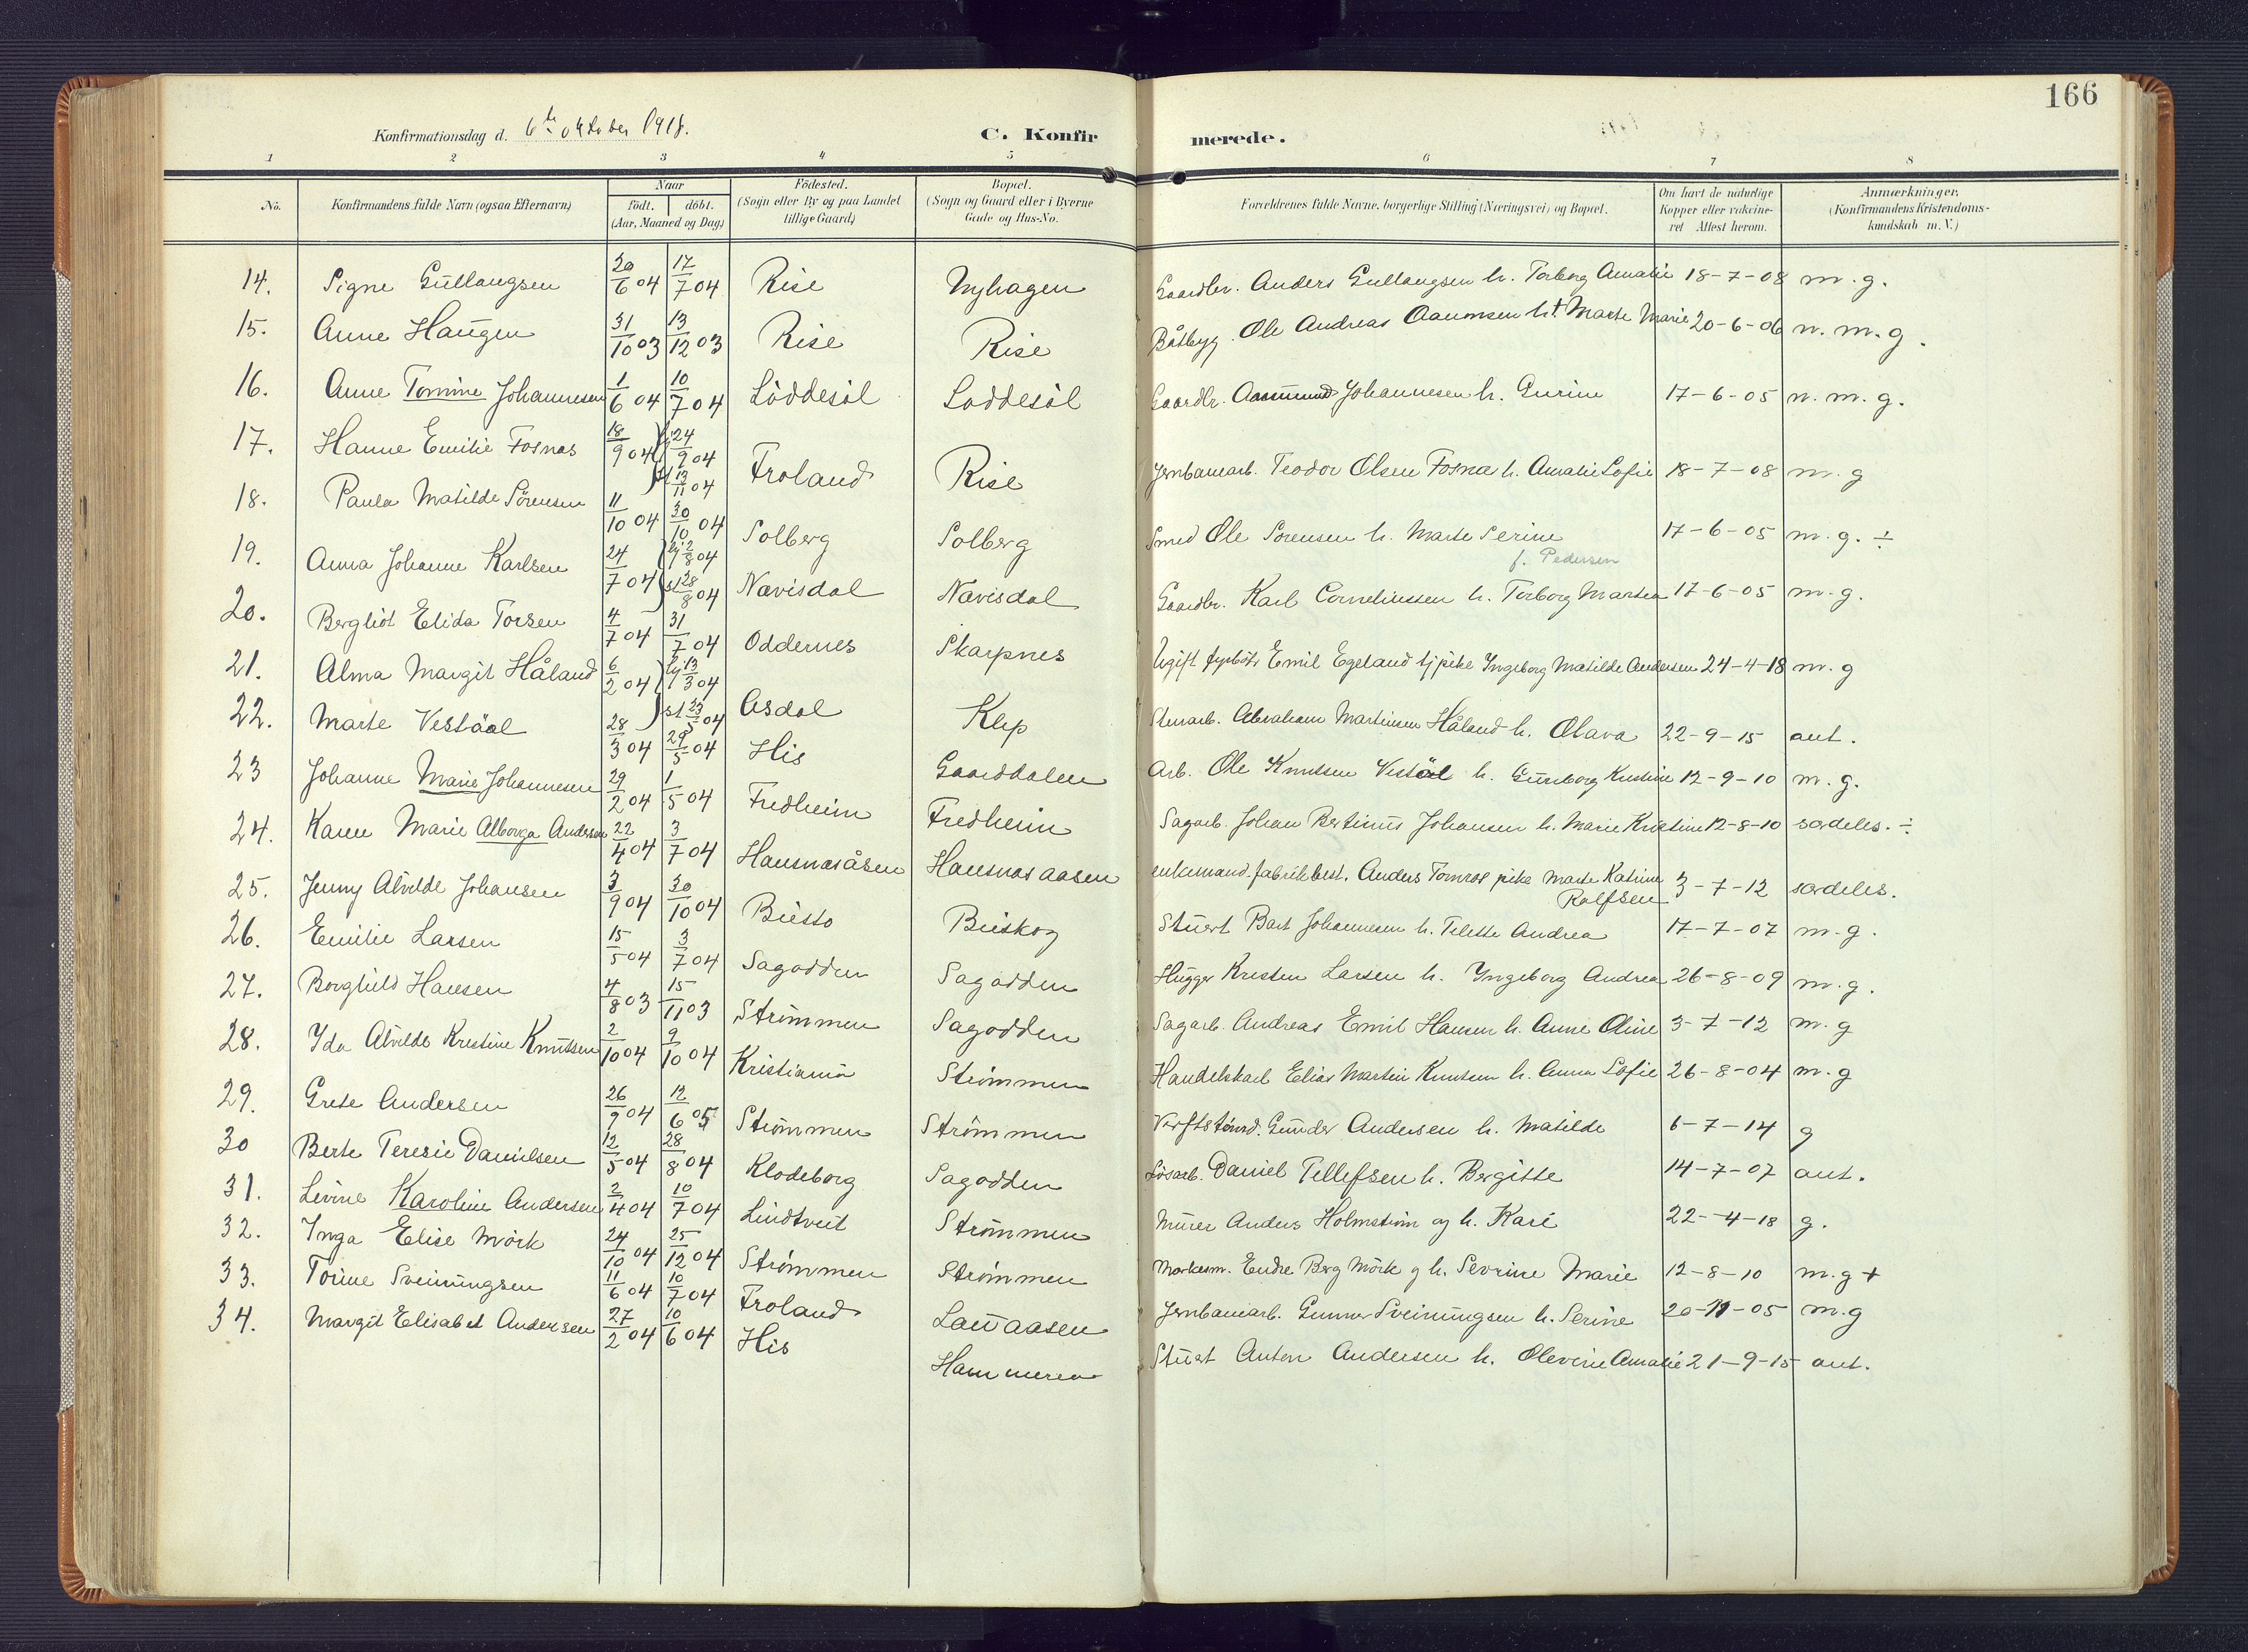 166
Konfirmationsdag d. 6te oktober 1918. C. Konfirmerede.
1 2 3 4 5 6 7 8
No. Konfirmandens fulde Navn (ogsaa Efternavn) Naar födt. döbt. (Aar, Maaned og Dag) Födested. (Sogn eller By og paa Landet tillige Gaard) Bopæl. (Sogn og Gaard eller i Byerne Gade og Hus-No. Forældrenes fulde Navne, borgerlige Stilling (Næringsvei) og Bopæl. Om havt de naturlige Kopper eller vakcineret Attest herom. Anmærkninger. (Konfirmandens Kristendomskundskab m. V.)
14. Signe Gullaugsen 20/6 04 17/7 04 Rise Nyhagen Gaardbr. Anders Gullaugsen h. Torborg Amalie 18-7-08 m.g.
15. Anne Haugen 31/10 03 13/12 03 Rise Rise Båtbyg. Ole Andreas Oaumsen h.† Marte Marie 20-6-06 n.m.g.
16. Anne Tomine Johannesen 1/6 04 10/7 04 Löddesöl Loddesöl Gaardbr. Aasmund Johannesen h. Gurine 17-6-05 n.m.g.
17. Hanne Emilie Fosnas 18/9 04 hj 24/9 04 st 13/11 04 Froland Rise Jernbanearb. Teodor Olsen Fosnæ h. Amalie Sofie 18-7-08 m.g
18. Paula Matilde Sörensen 11/10 04 30/10 04 Solberg Solberg Smed Ole Sorensen h. Marte Serine f. Pedersen 17-6-05 m.g. ÷
19. Anna Johanne Karlsen 24/7 04 hj 2/8 04 st 28/8 04 Nævisdal Nævisdal Gaardbr. Karl Corneliussen h. Torborg Martea 17-6-05 m.g.
20. Bergliot Elida Torsen 4/7 04 31/7 04 Oddernes Skarpnes Ugift fyrböter Emil Egeland tj pike Yngeborg Matilde Andersen 24-4-18 m.g
21. Alma Margit Håland 6/2 04 hj 13/3 04 st 23/5 04 Asdal Klep Stenarb. Abraham Martinsen Håland h. Olava 22-9-15 aut.
22. Marte Vestöl 28/3 04 29/5 04 His Gaarddalen Arb. Ole Knutsen Vestöl h. Gunborg Kristine 12-9-10 m.g.
23 Johanne Marie Johannesen 29/2 04 1/5 04 Fredheim Fredheim Sagarb. Johan Bertinus Johansen h. Marie Kristine 12-8-10 særdeles. ÷
24. Karen Marie Alborga Andersen 22/4 04 3/7 04 Hausnasåsen Hausnas aasen enkemand. fabrikbest. Anders Tomras pike Marte Katrine Rolfsen 3-7-12 særdeles.
25. Jenny Alvilde Johansen 3/9 04 30/10 04 Busto Buskog Stuert Bart Johannesen h. Telette Andrea 17-7-07 m.g.
26. Emilie Larsen 15/5 04 3/7 04 Sagodden Sagodden Hugger Kristen Larsen h. Yngeborg Andrea 26-8-09 m.g.
27. Borghild Hansen 4/8 03 15/11 03 Strømmen Sagodden Sagarb. Andreas Emil Hansen h. Anne Oline 3-7-12 m.g
28. Yda Alvilde Kristine Knutsen 2/10 04 9/10 04 Kristiania Strömmen Handelskarl Elias Martin Knutsen h. Anna Sofie 26-8-04 m.g
29. Grete Andersen 26/9 04 12/6 05 Strömmen Strömmen Verftstömrd. Gunder Andersen h. Matilde 6-7-14 g
30 Berte Teresie Danielsen 12/5 04 28/8 04 Klodeborg Sagodden Lösarb. Daniel Tellefsen h. Bergitte 14-7-07 aut.
31. Levine Karoline Andersen 2/4 04 10/7 04 Lindtveit Strömmen Murer Anders Holmström og h. Kari 22-4-18 g.
32. Inga Elise Mörk 24/10 04 25/12 04 Strømmen Strömmen Endre Berg Mörk og h. Severine Marie 12-8-10 m.g +
33. Torine Sveinungsen 11/6 04 10/7 04 Froland Lauvaasen Jernbanearb. Gunner Sveinungsen h. Serine 20-11-05 m.g
34. Margit Elisabet Andersen 27/2 04 10/6 04 His Hammeren Stuert Anton Andersen h. Olevine Amalie 21-9-15 aut.